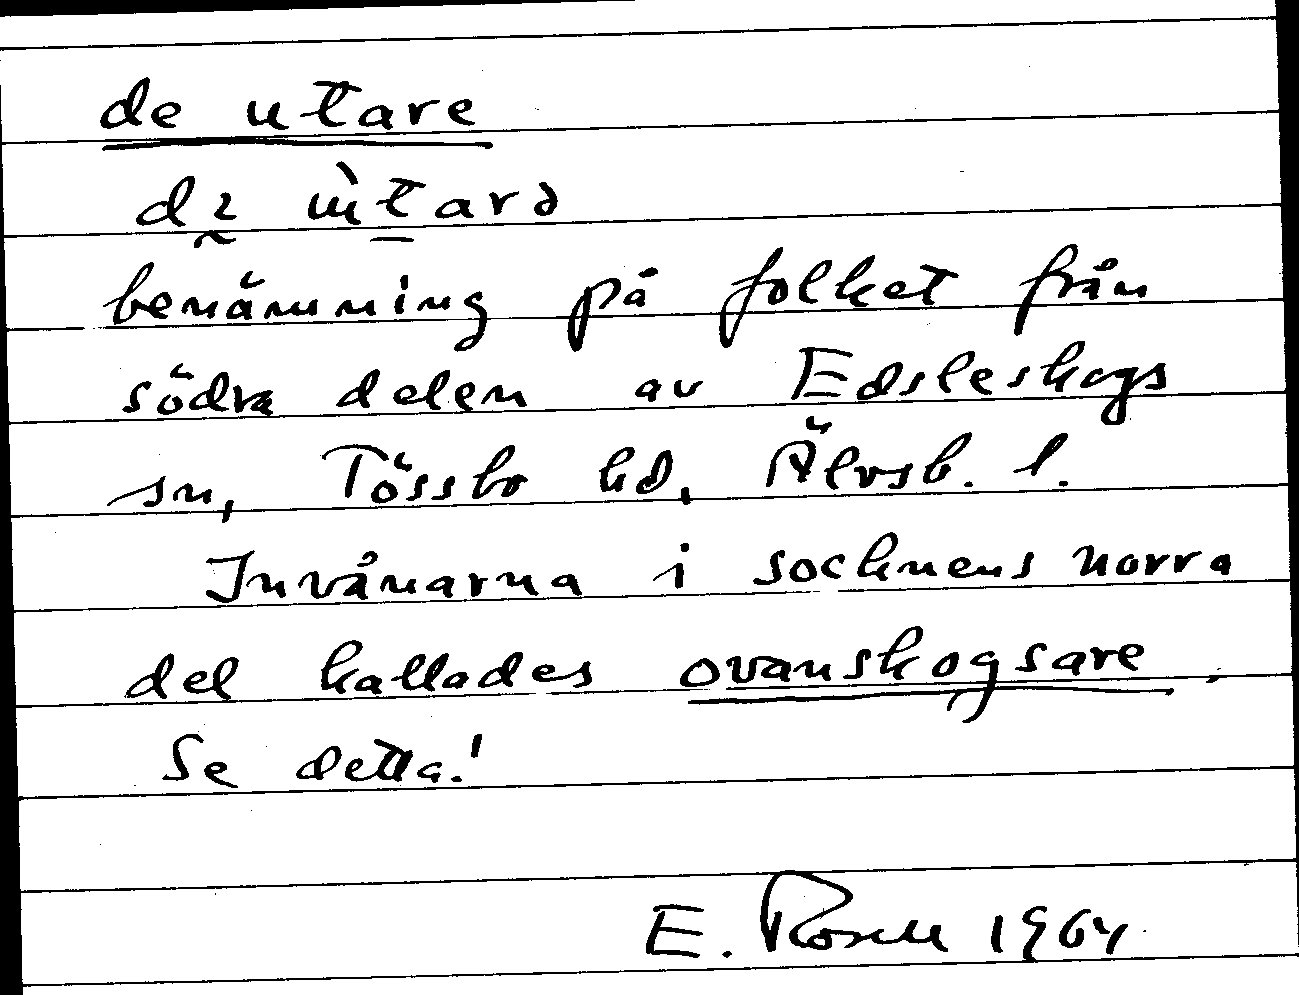 de utare
benämning på folket från
södra delen av Edsleskogs
sn, Tössbo hd, Älvsb. l.
Invånarna i socknens norra
del kallades ovanskogsare.
Se detta!
E. Rosell 1964